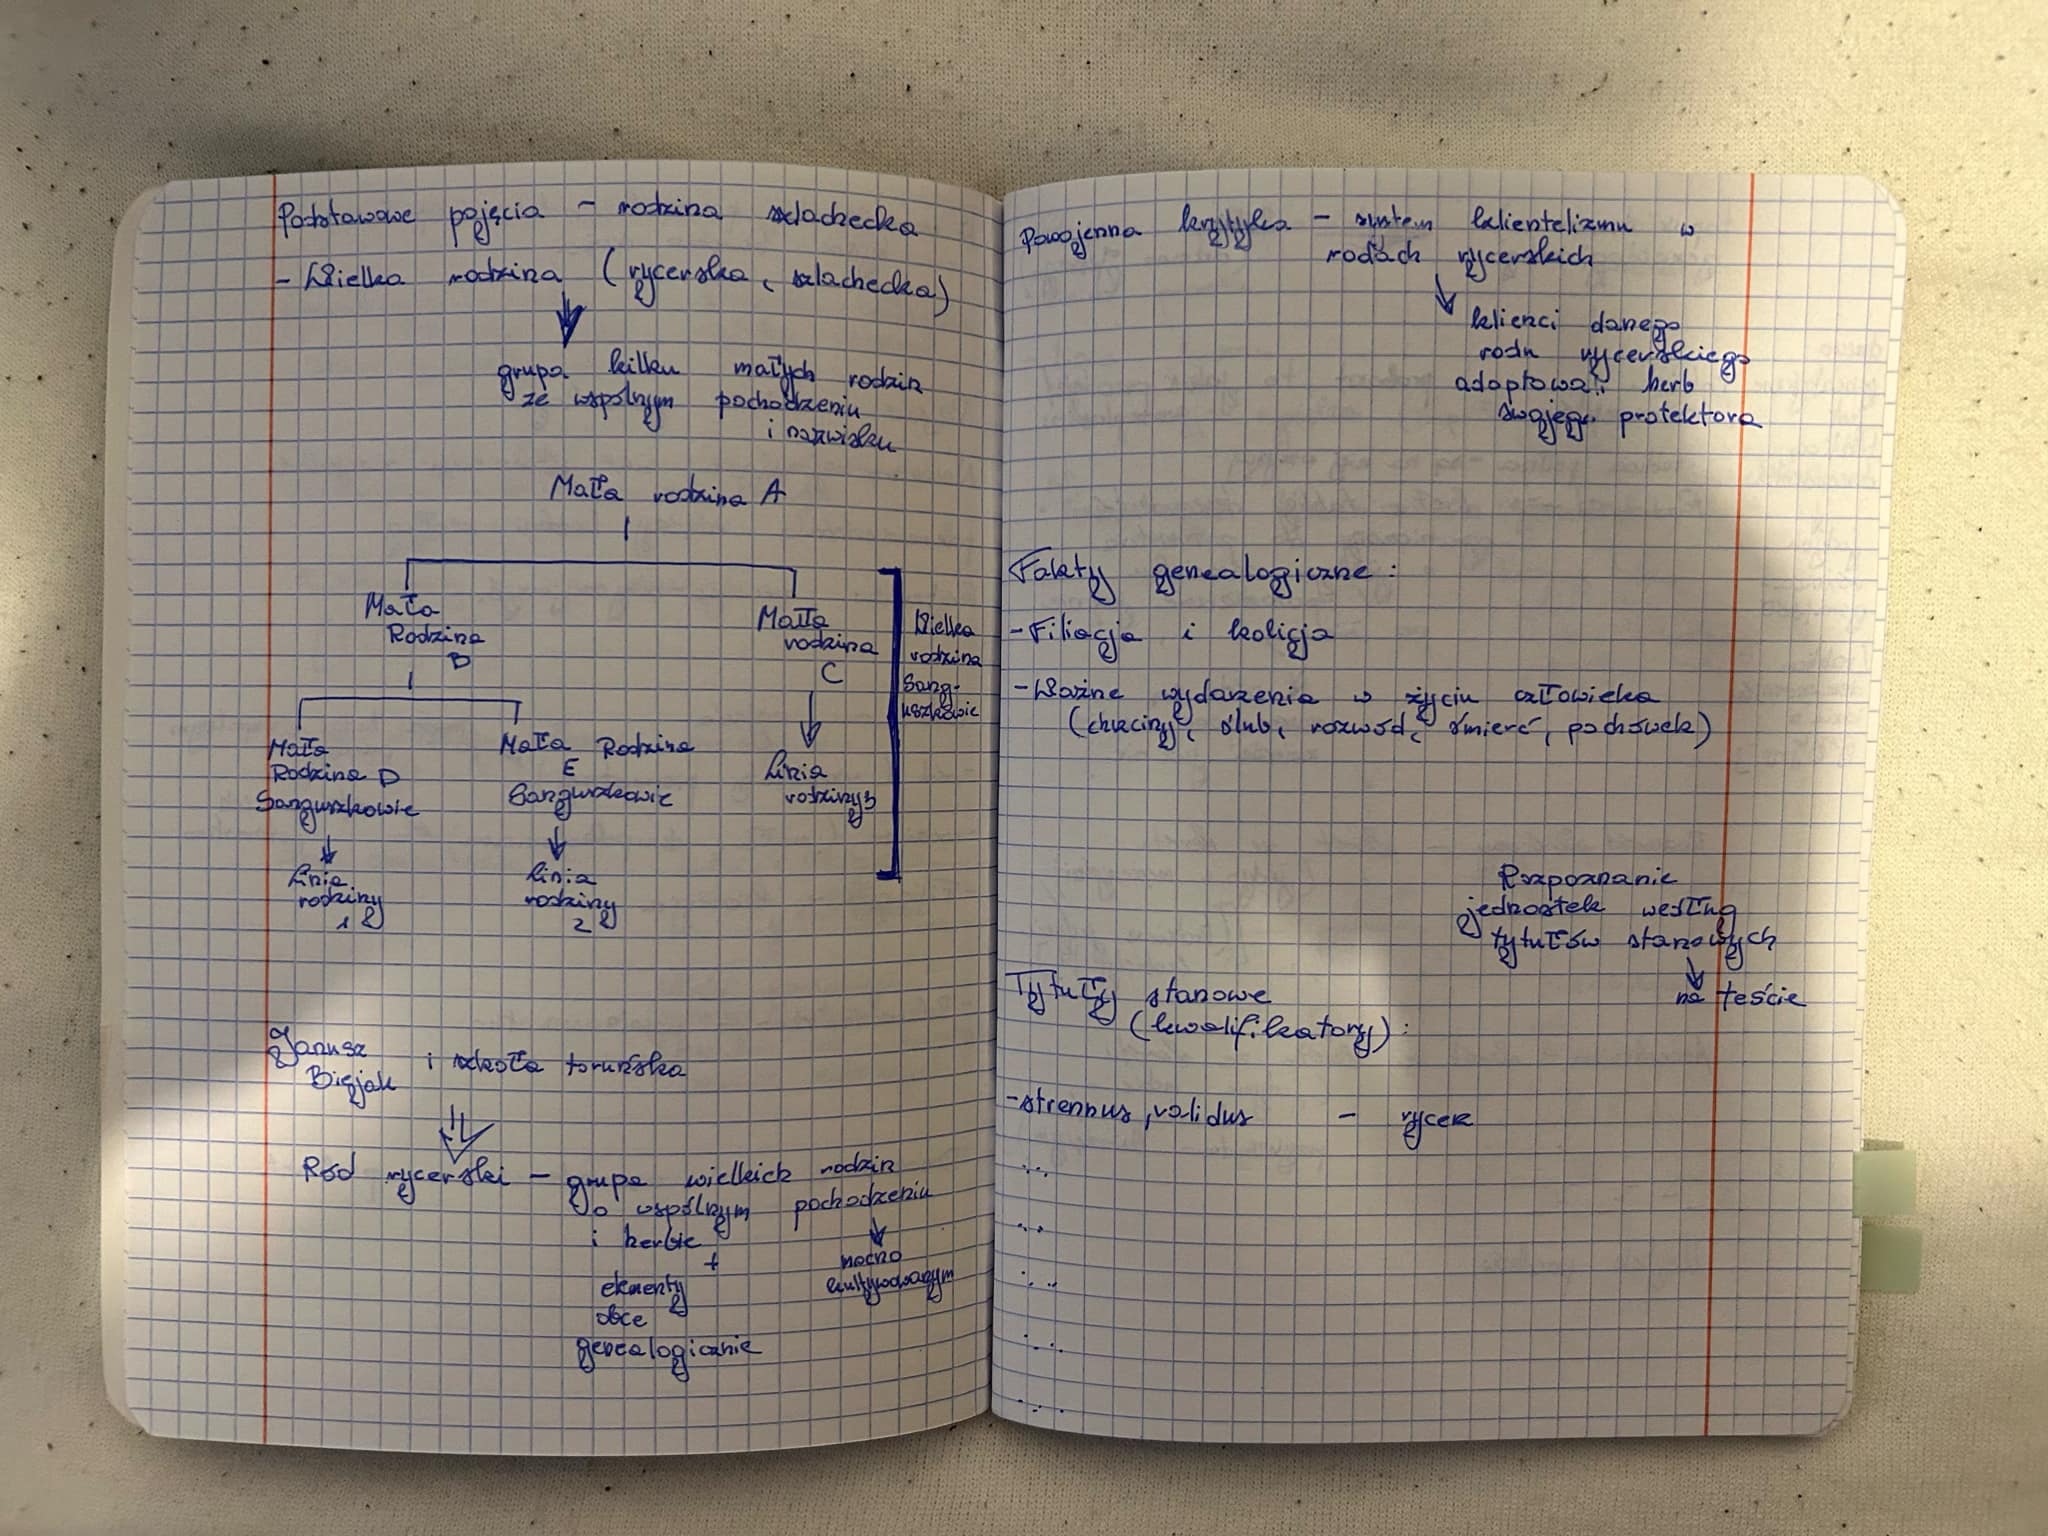 Podstawowe pojęcia - rodzina szlachecka
- Wielka rodzina (rycerska, szlachecka)
grupa kilku małych rodzin
ze wspólnym pochodzeniu
i nazwisku
Mała rodzina A
Mała
Rodzina
B
Mała
rodzina
C
Wielka
rodzina
Sang-
uszkowie
Mała
Rodzina D
Sanguszkowie
Mała Rodzina
E
Sanguszkowie
Linia
rodziny 3
Linia
rodziny
1
Linia
rodziny
2
Janusz
Bieniak
i szkoła toruńska
Ród rycerski - grupa wielkich rodzin
o wspólnym pochodzeniu
i herbie
+
elementy
obce
genealogicznie
mocno
kultywowanym
Powojenna krytyka - system klientelizmu w
rodach rycerskich
klienci danego
rodu rycerskiego
adoptowali herb
swojego protektora
Fakty genealogiczne:
- Filiacja i kolicja
- Ważne wydarzenia w życiu człowieka
(chrzciny, ślub, rozwód, śmierć, pochówek)
Rozpoznanie
jednostek według
tytułów stanowych
na teście
Tytuły stanowe
(kwalifikatory):
- strennus, validus - rycerz
...
...
...
...
...